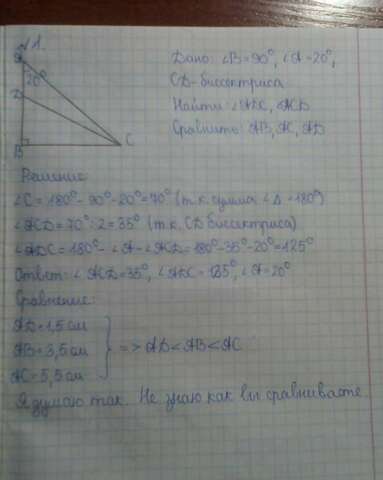 №1.
A
20°
D
B
C
Дано: ∠B=90°, ∠A=20°,
CD-биссектриса
Найти: ∠ADC, ∠ACD
Сравнить: AB, AC, AD
Решение:
∠C=180°-90°-20°=70° (т.к. сумма ∠Δ=180°)
∠ACD=70°:2=35° (т.к. CD биссектриса)
∠ADC=180°-∠A-∠ACD=180°-35°-20°=125°
Ответ: ∠ACD=35°, ∠ADC=125°, ∠A=20°
Сравнение:
AD=1,5 см
AB=3,5 см => AD<AB<AC
AC=5,5 см
Я думаю так. Не знаю как вы сравниваете.